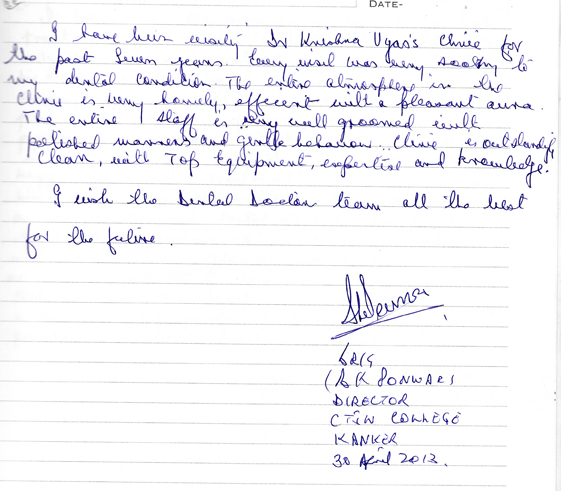 DATE-
I have been visiting Dr Krishna Vyas's Clinic for
the past Seven years. Every visit was very soothing to
my dental condition. The entire atmosphere in the
Clinic is very homely, efficient with a pleasant aura.
The entire Staff is very well groomed with
polished manners and gentle behaviour. Clinic is outstandingly
Clean, with Top Equipment, expertise and knowledge.
I wish the Dental Doctor team all the best
for the future.
BRIG
(B K PONWAR)
DIRECTOR
CTJW COLLEGE
KANKER
30 April 2013.